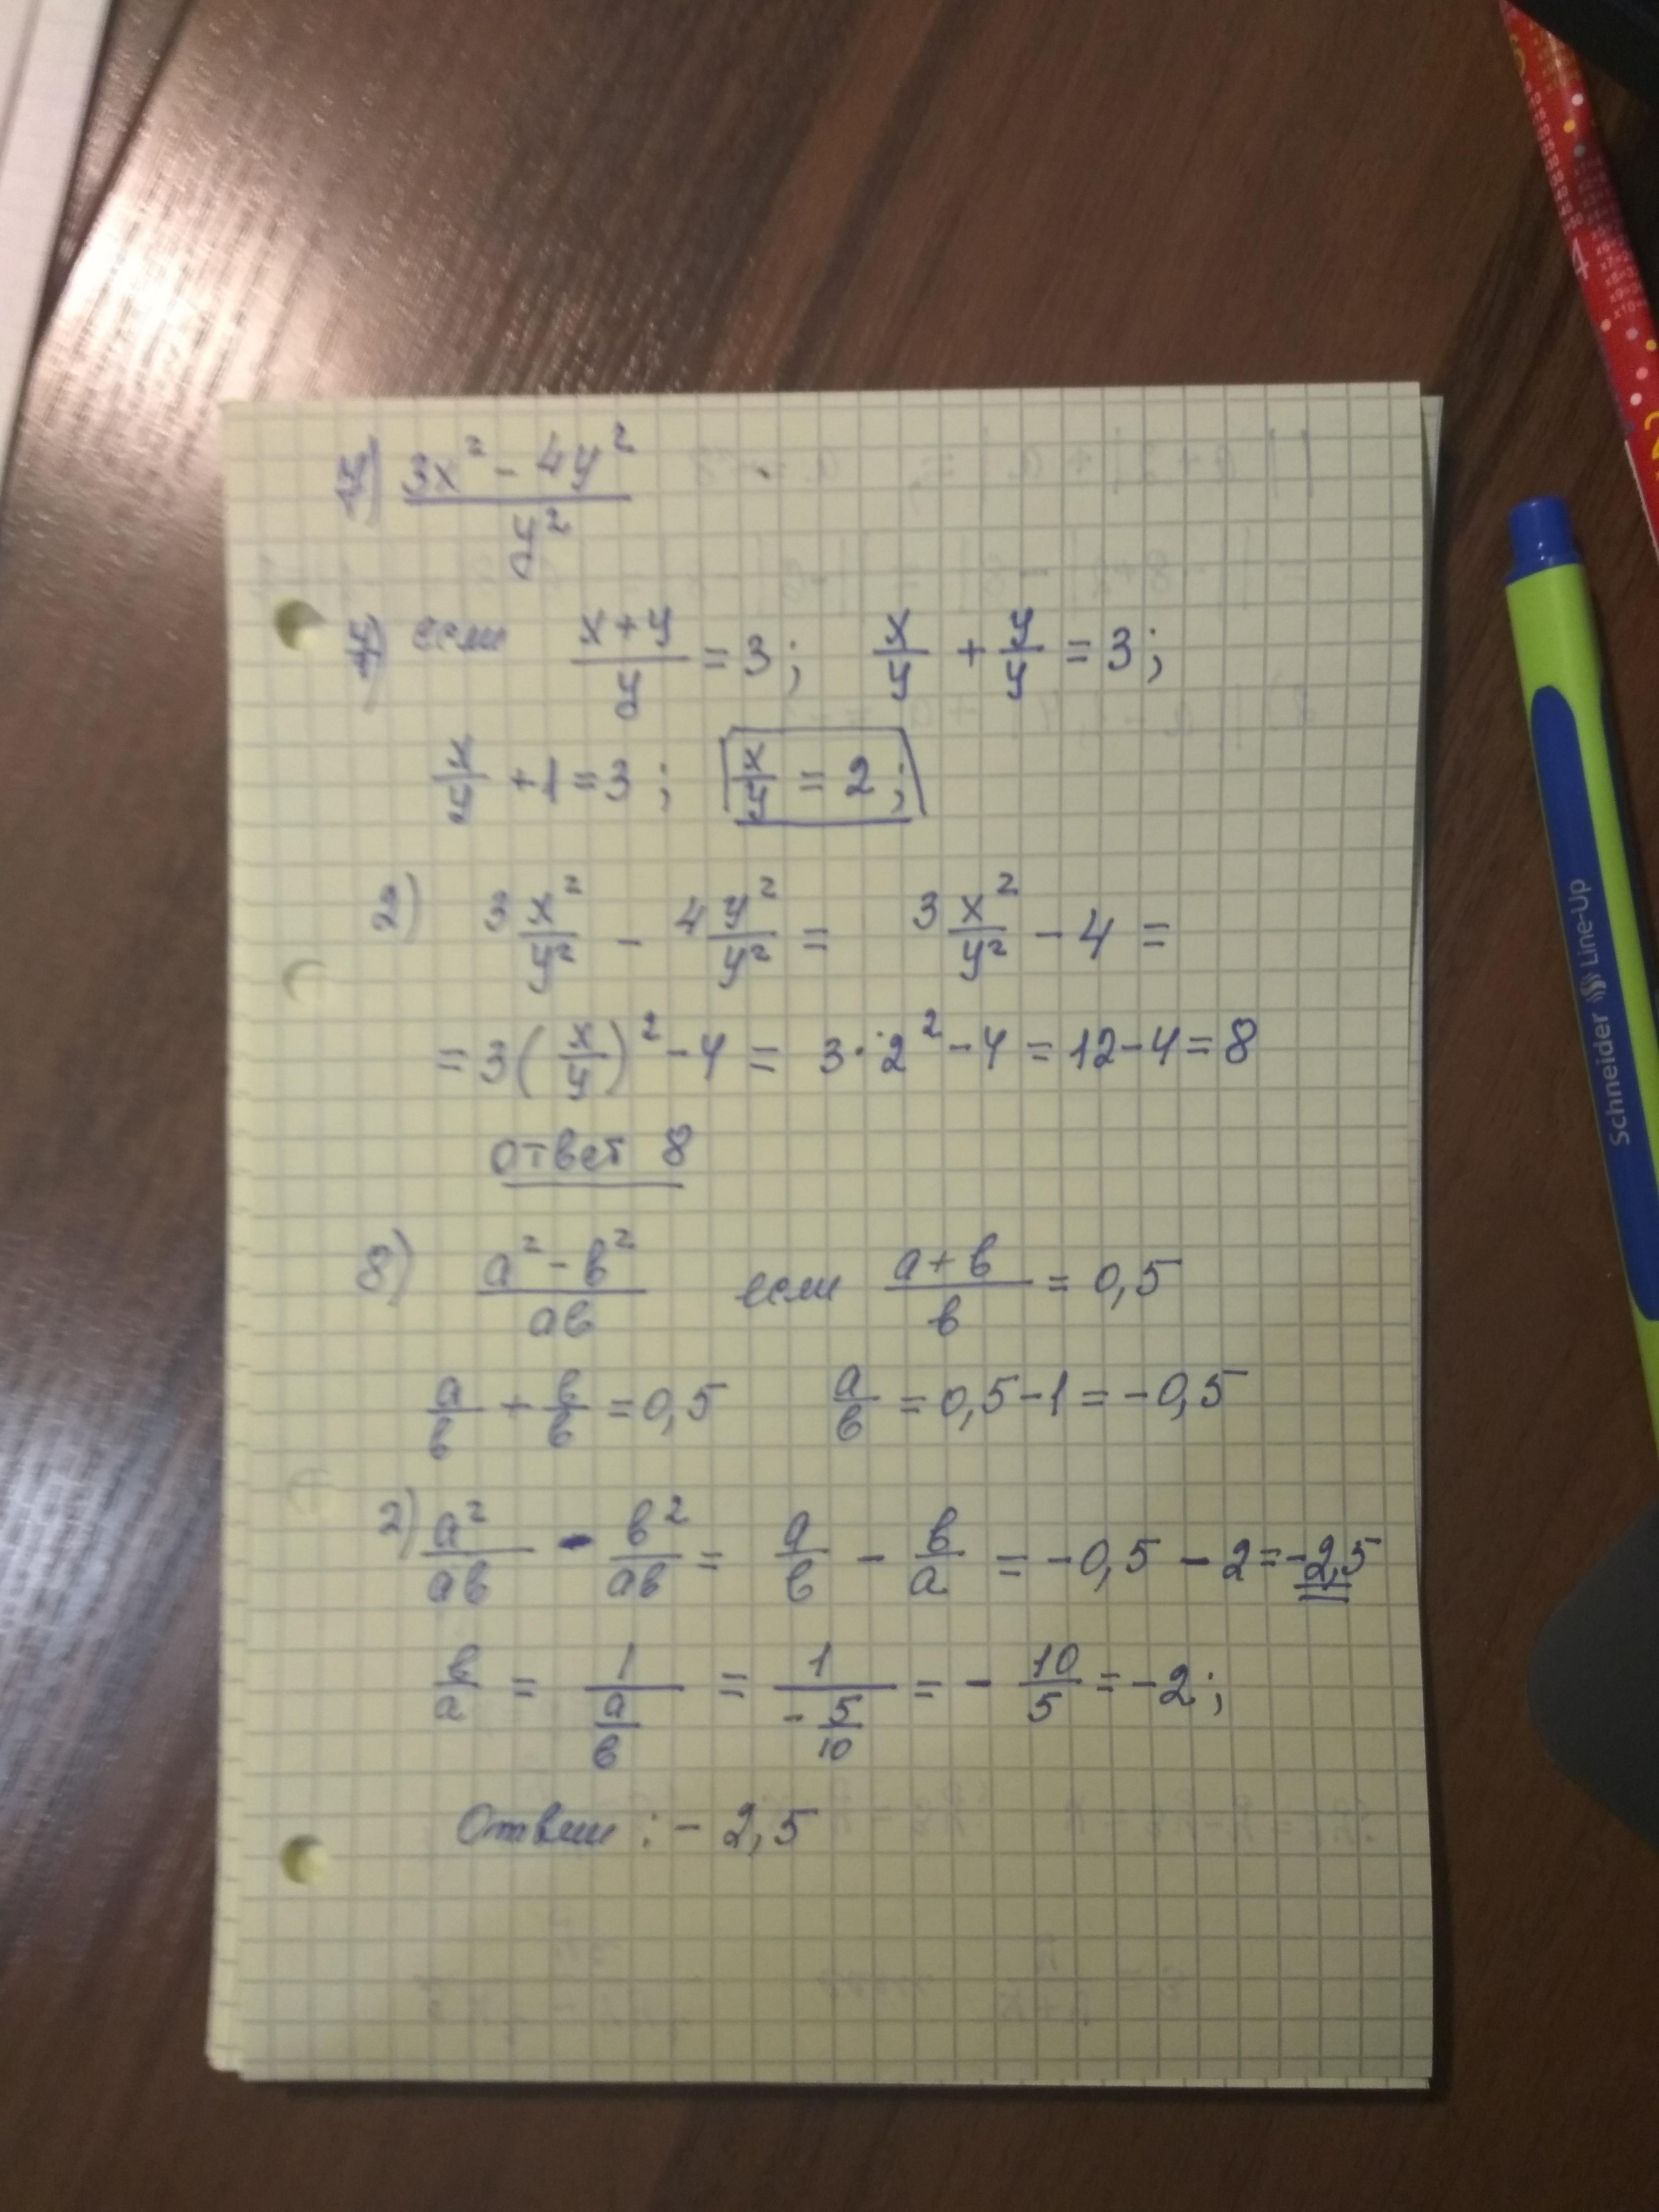 7) (3x² - 4y²)/y²
1) если (x+y)/y = 3; x/y + y/y = 3;
x/y + 1 = 3; x/y = 2;
2) 3 x²/y² - 4 y²/y² = 3 x²/y² - 4 =
= 3(x/y)² - 4 = 3·2² - 4 = 12 - 4 = 8
ответ 8
8) (a² - в²)/aв если (a+в)/в = 0,5
a/в + в/в = 0,5 a/в = 0,5 - 1 = -0,5
2) a²/aв - в²/aв = a/в - в/a = -0,5 - 2 = -2,5
в/a = 1/(a/в) = 1/(-5/10) = -10/5 = -2;
Ответ: -2,5
Schneider Line-Up